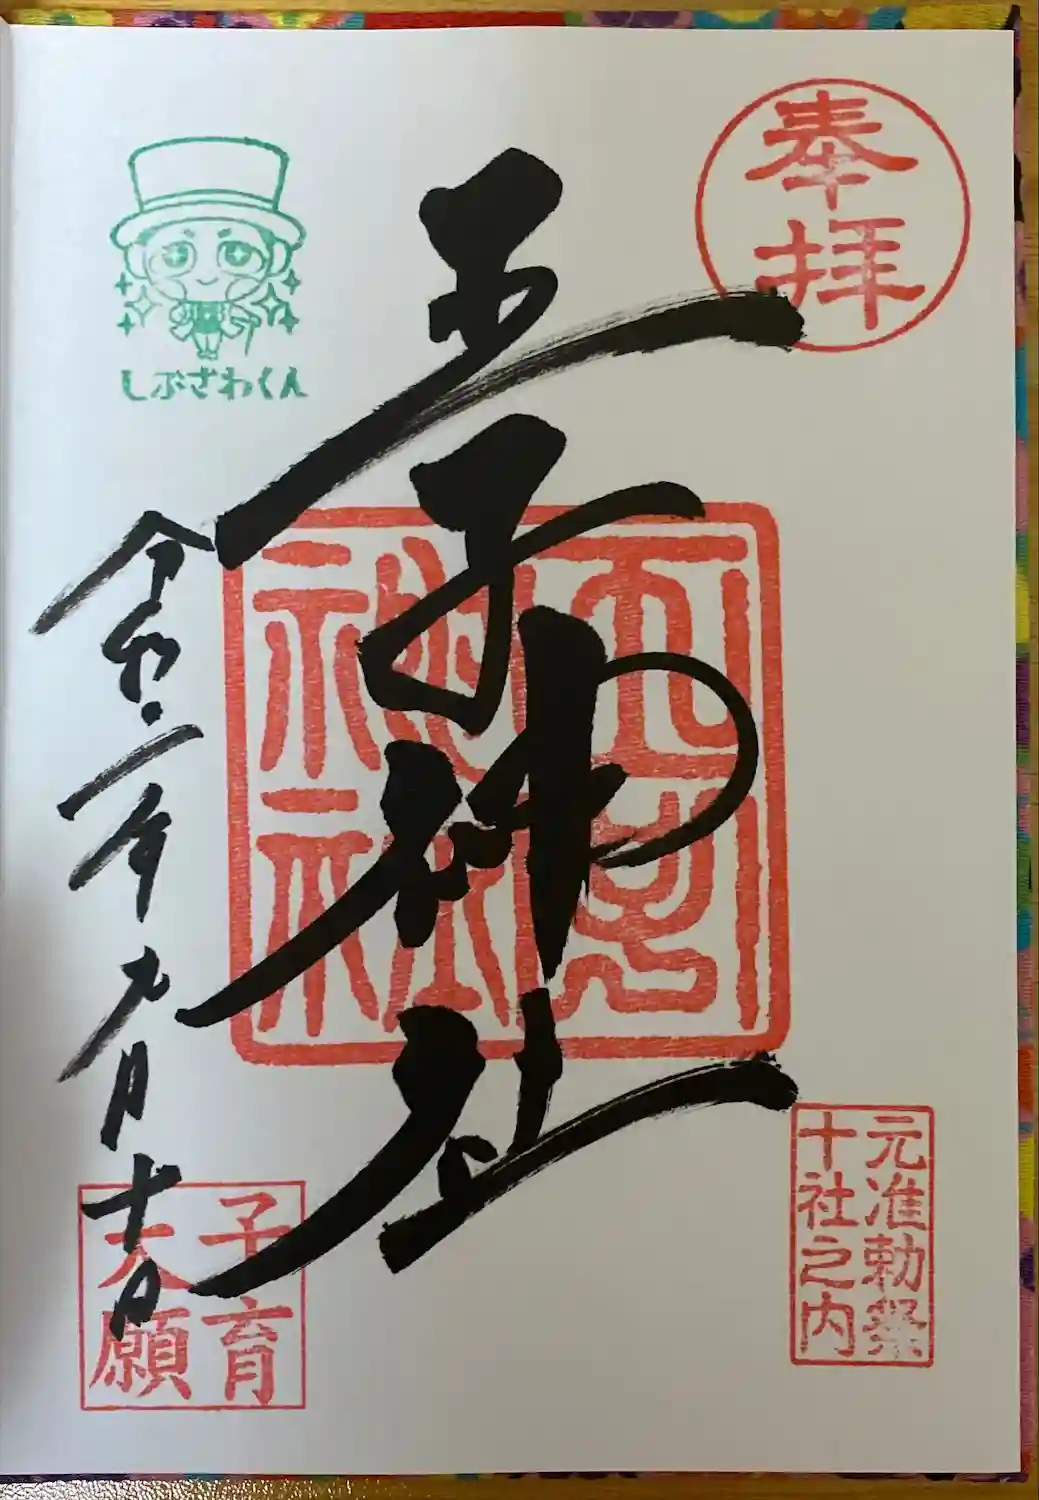 奉拝
元准勅祭
十社之内
王子神社
王子
神社
しぶざわくん
令和二年九月
子育
大願